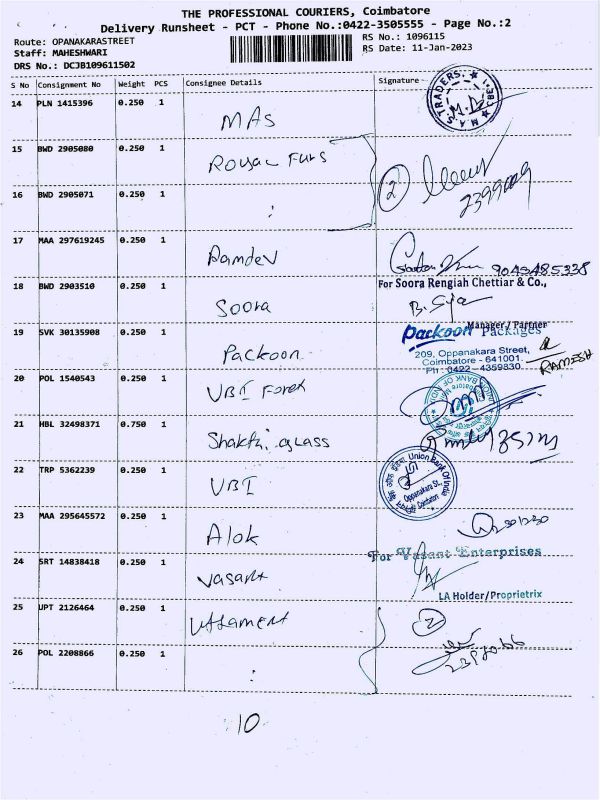 THE PROFESSIONAL COURIERS, Coimbatore
Delivery Runsheet - PCT - Phone No.:0422-3505555 - Page No.:2
Route: OPANAKARASTREET
Staff: MAHESHWARI
DRS No.: DCJB109611502
RS No.: 1096115
RS Date: 11-Jan-2023
S No Consignment No Weight PCS Consignee Details Signature
14 PLN 1415396 0.250 1 MAS
M.A.S TRADERS. CBE-1
15 BWD 2905080 0.250 1 Royal Furs
2
2399009
16 BWD 2905071 0.250 1 :
17 MAA 297619245 0.250 1 Ramdev
9045485338
18 BWD 2903510 0.250 1 Soora
For Soora Rengiah Chettiar & Co.,
Manager / Partner
19 SVK 30135908 0.250 1 Packoon
Packoon Packages
209, Oppanakara Street,
Coimbatore - 641001.
Ph : 0422 - 4359830
RAMESH
20 POL 1540543 0.250 1 UBI Forex
UNION BANK OF INDIA
21 HBL 32498371 0.750 1 Shakthi glass
22 TRP 5362239 0.250 1 UBI
Union Bank Of India
Oppanakara St.,
Coimbatore
23 MAA 295645572 0.250 1 Alok
24 SRT 14838418 0.250 1 Vasant
For Vasant Enterprises
LA Holder/Proprietrix
25 UPT 2126464 0.250 1
2
26 POL 2208866 0.250 1 :
10